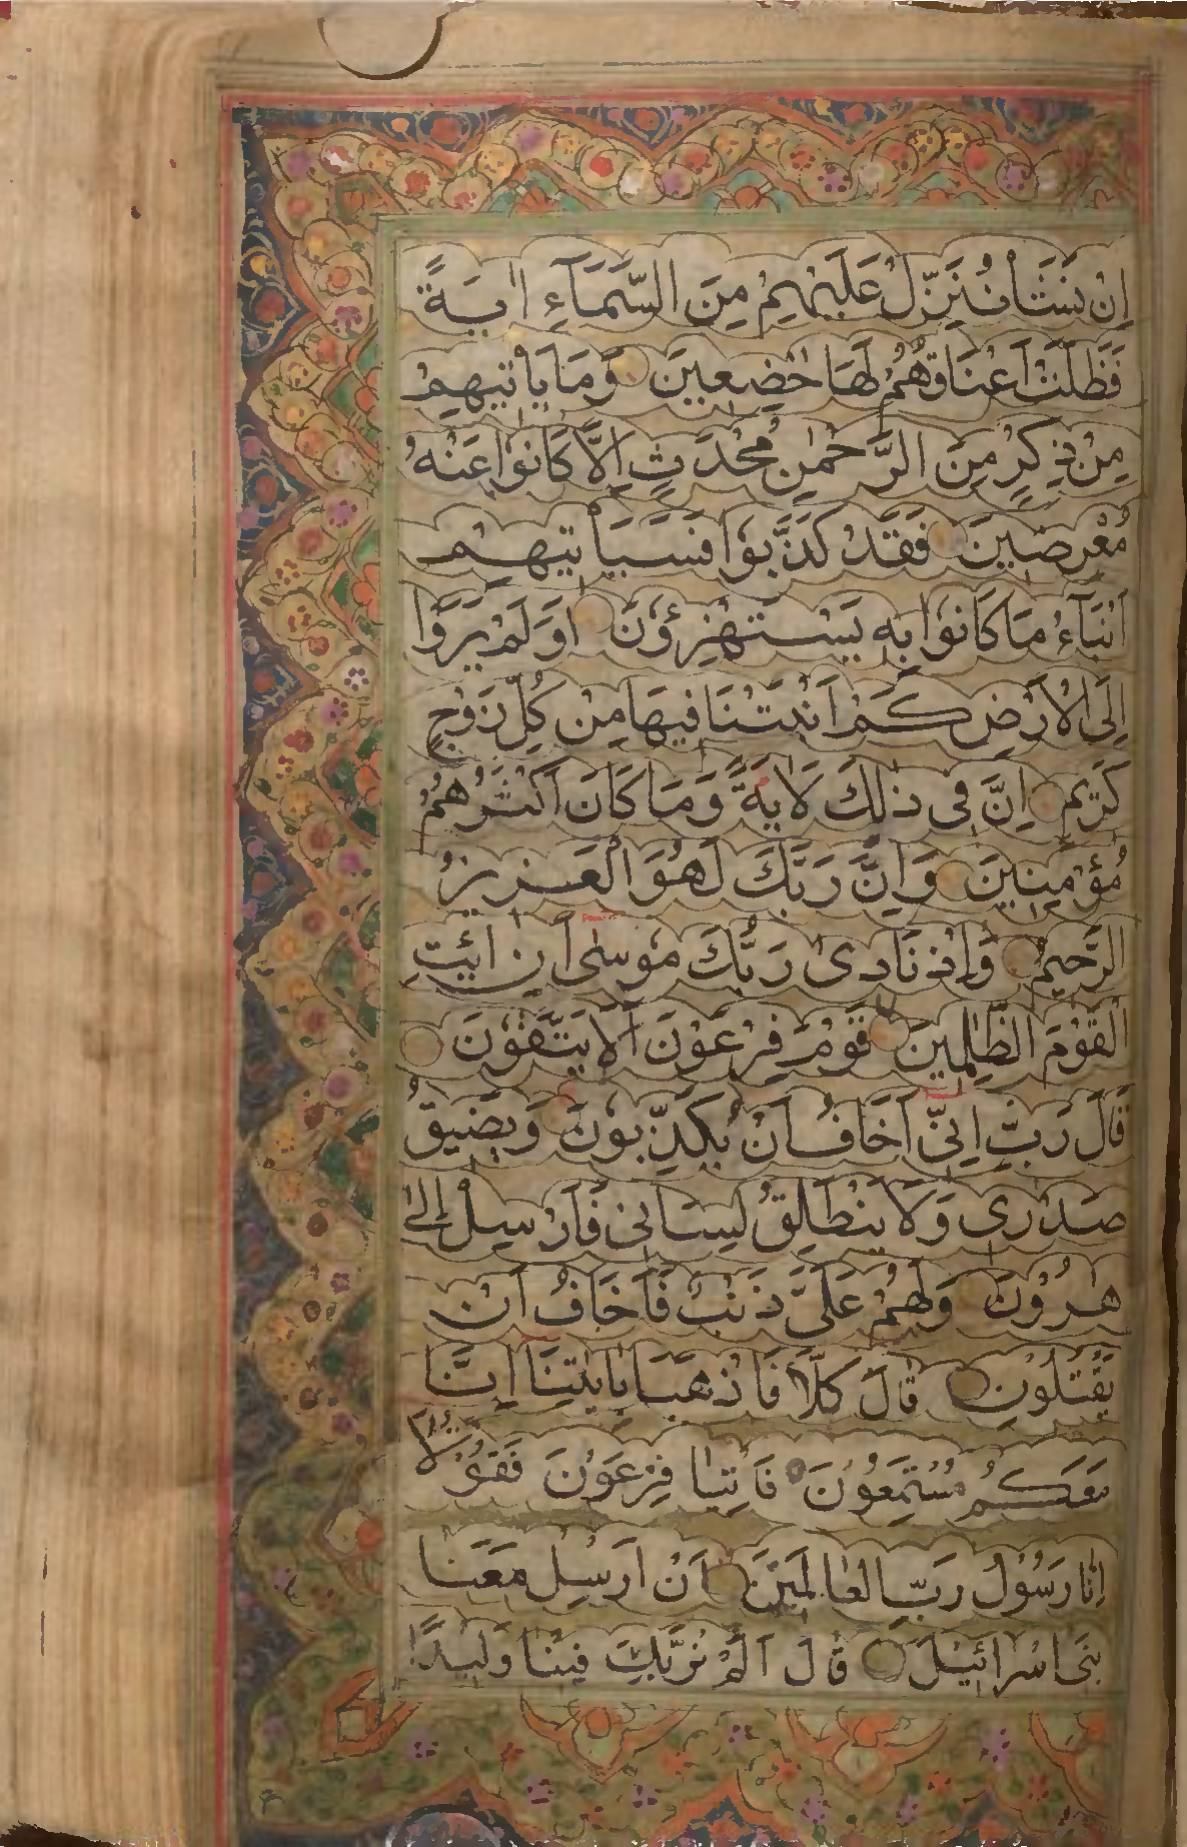 اِنْ نَشَأْ نُنَزِّلْ عَلَيْهِمْ مِنَ السَّمَآءِ اٰيَةً
فَظَلَّتْ اَعْنَاقُهُمْ لَهَا خٰضِعِينَ وَمَا يَأْتِيهِمْ
مِنْ ذِكْرٍ مِنَ الرَّحْمٰنِ مُحْدَثٍ اِلَّا كَانُوا عَنْهُ
مُعْرِضِينَ فَقَدْ كَذَّبُوا فَسَيَأْتِيهِمْ
اَنْبَآءُ مَا كَانُوا بِهِ يَسْتَهْزِؤُنَ اَوَلَمْ يَرَوْا
اِلَى الْاَرْضِ كَمْ اَنْبَتْنَا فِيهَا مِنْ كُلِّ زَوْجٍ
كَرِيمٍ اِنَّ فِى ذٰلِكَ لَاٰيَةً وَمَا كَانَ اَكْثَرُهُمْ
مُؤْمِنِينَ وَاِنَّ رَبَّكَ لَهُوَ الْعَزِيزُ
الرَّحِيمُ وَاِذْ نَادٰى رَبُّكَ مُوسٰى اَنِ ائْتِ
الْقَوْمَ الظّٰلِمِينَ قَوْمَ فِرْعَوْنَ اَلَا يَتَّقُونَ
قَالَ رَبِّ اِنِّى اَخَافُ اَنْ يُكَذِّبُونِ وَيَضِيقُ
صَدْرِى وَلَا يَنْطَلِقُ لِسَانِى فَاَرْسِلْ اِلٰى
هٰرُوْنَ وَلَهُمْ عَلَىَّ ذَنْبٌ فَاَخَافُ اَنْ
يَقْتُلُونِ قَالَ كَلَّا فَاذْهَبَا بِاٰيٰتِنَا اِنَّا
مَعَكُمْ مُسْتَمِعُوْنَ فَأْتِيَا فِرْعَوْنَ فَقُوْلَا
اِنَّا رَسُوْلُ رَبِّ الْعَالَمِيْنَ اَنْ اَرْسِلْ مَعَنَا
بَنِى اِسْرَائِيْلَ قَالَ اَلَمْ نُرَبِّكَ فِيْنَا وَلِيْدًا